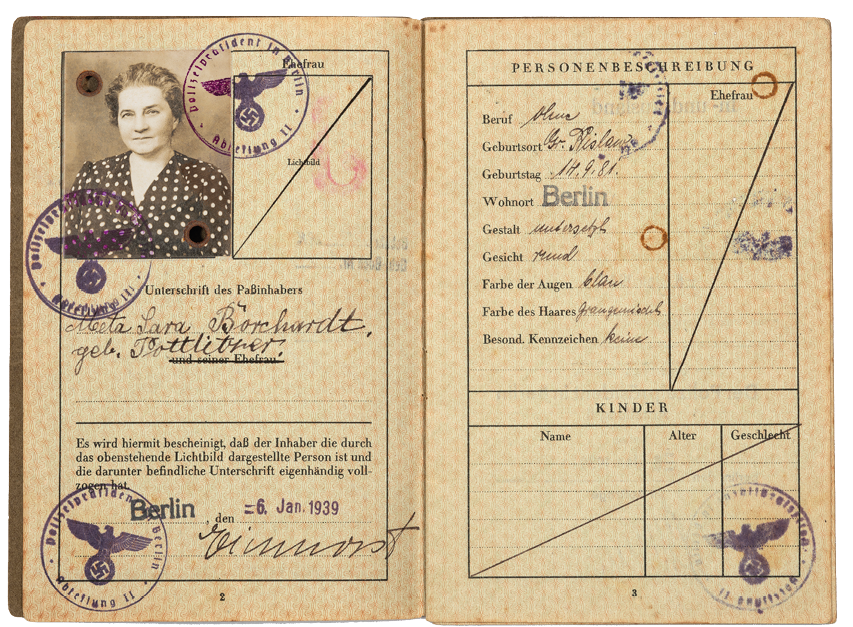 Polizeipräsident in Berlin
Abteilung II
Ehefrau
Lichtbild
Polizeipräsident in Berlin
Abteilung II
Unterschrift des Paßinhabers
Meta Sara Borchardt,
geb. Pottlitzer.
und seiner Ehefrau
Es wird hiermit bescheinigt, daß der Inhaber die durch
das obenstehende Lichtbild dargestellte Person ist und
die darunter befindliche Unterschrift eigenhändig voll-
zogen hat.
Berlin, den =6. Jan. 1939
Polizeipräsident in Berlin
Abteilung II
2
PERSONENBESCHREIBUNG
Ehefrau
Beruf ohne
Geburtsort Gr.
Geburtstag 17.9.81.
Wohnort Berlin
Gestalt untersetzt
Gesicht rund
Farbe der Augen blau
Farbe des Haares graumeliert
Besond. Kennzeichen keine
KINDER
Name Alter Geschlecht
Abteilung II
3